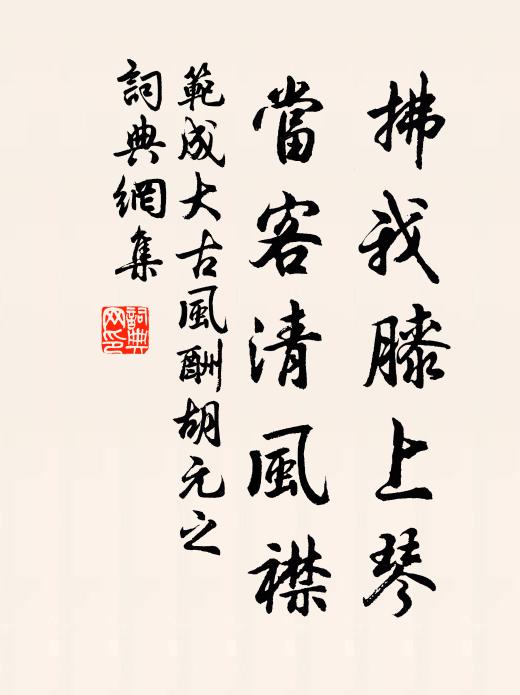 拂我膝上琴
當客清風襟
範成大古風酬胡元之
詞典網集
詞典网印